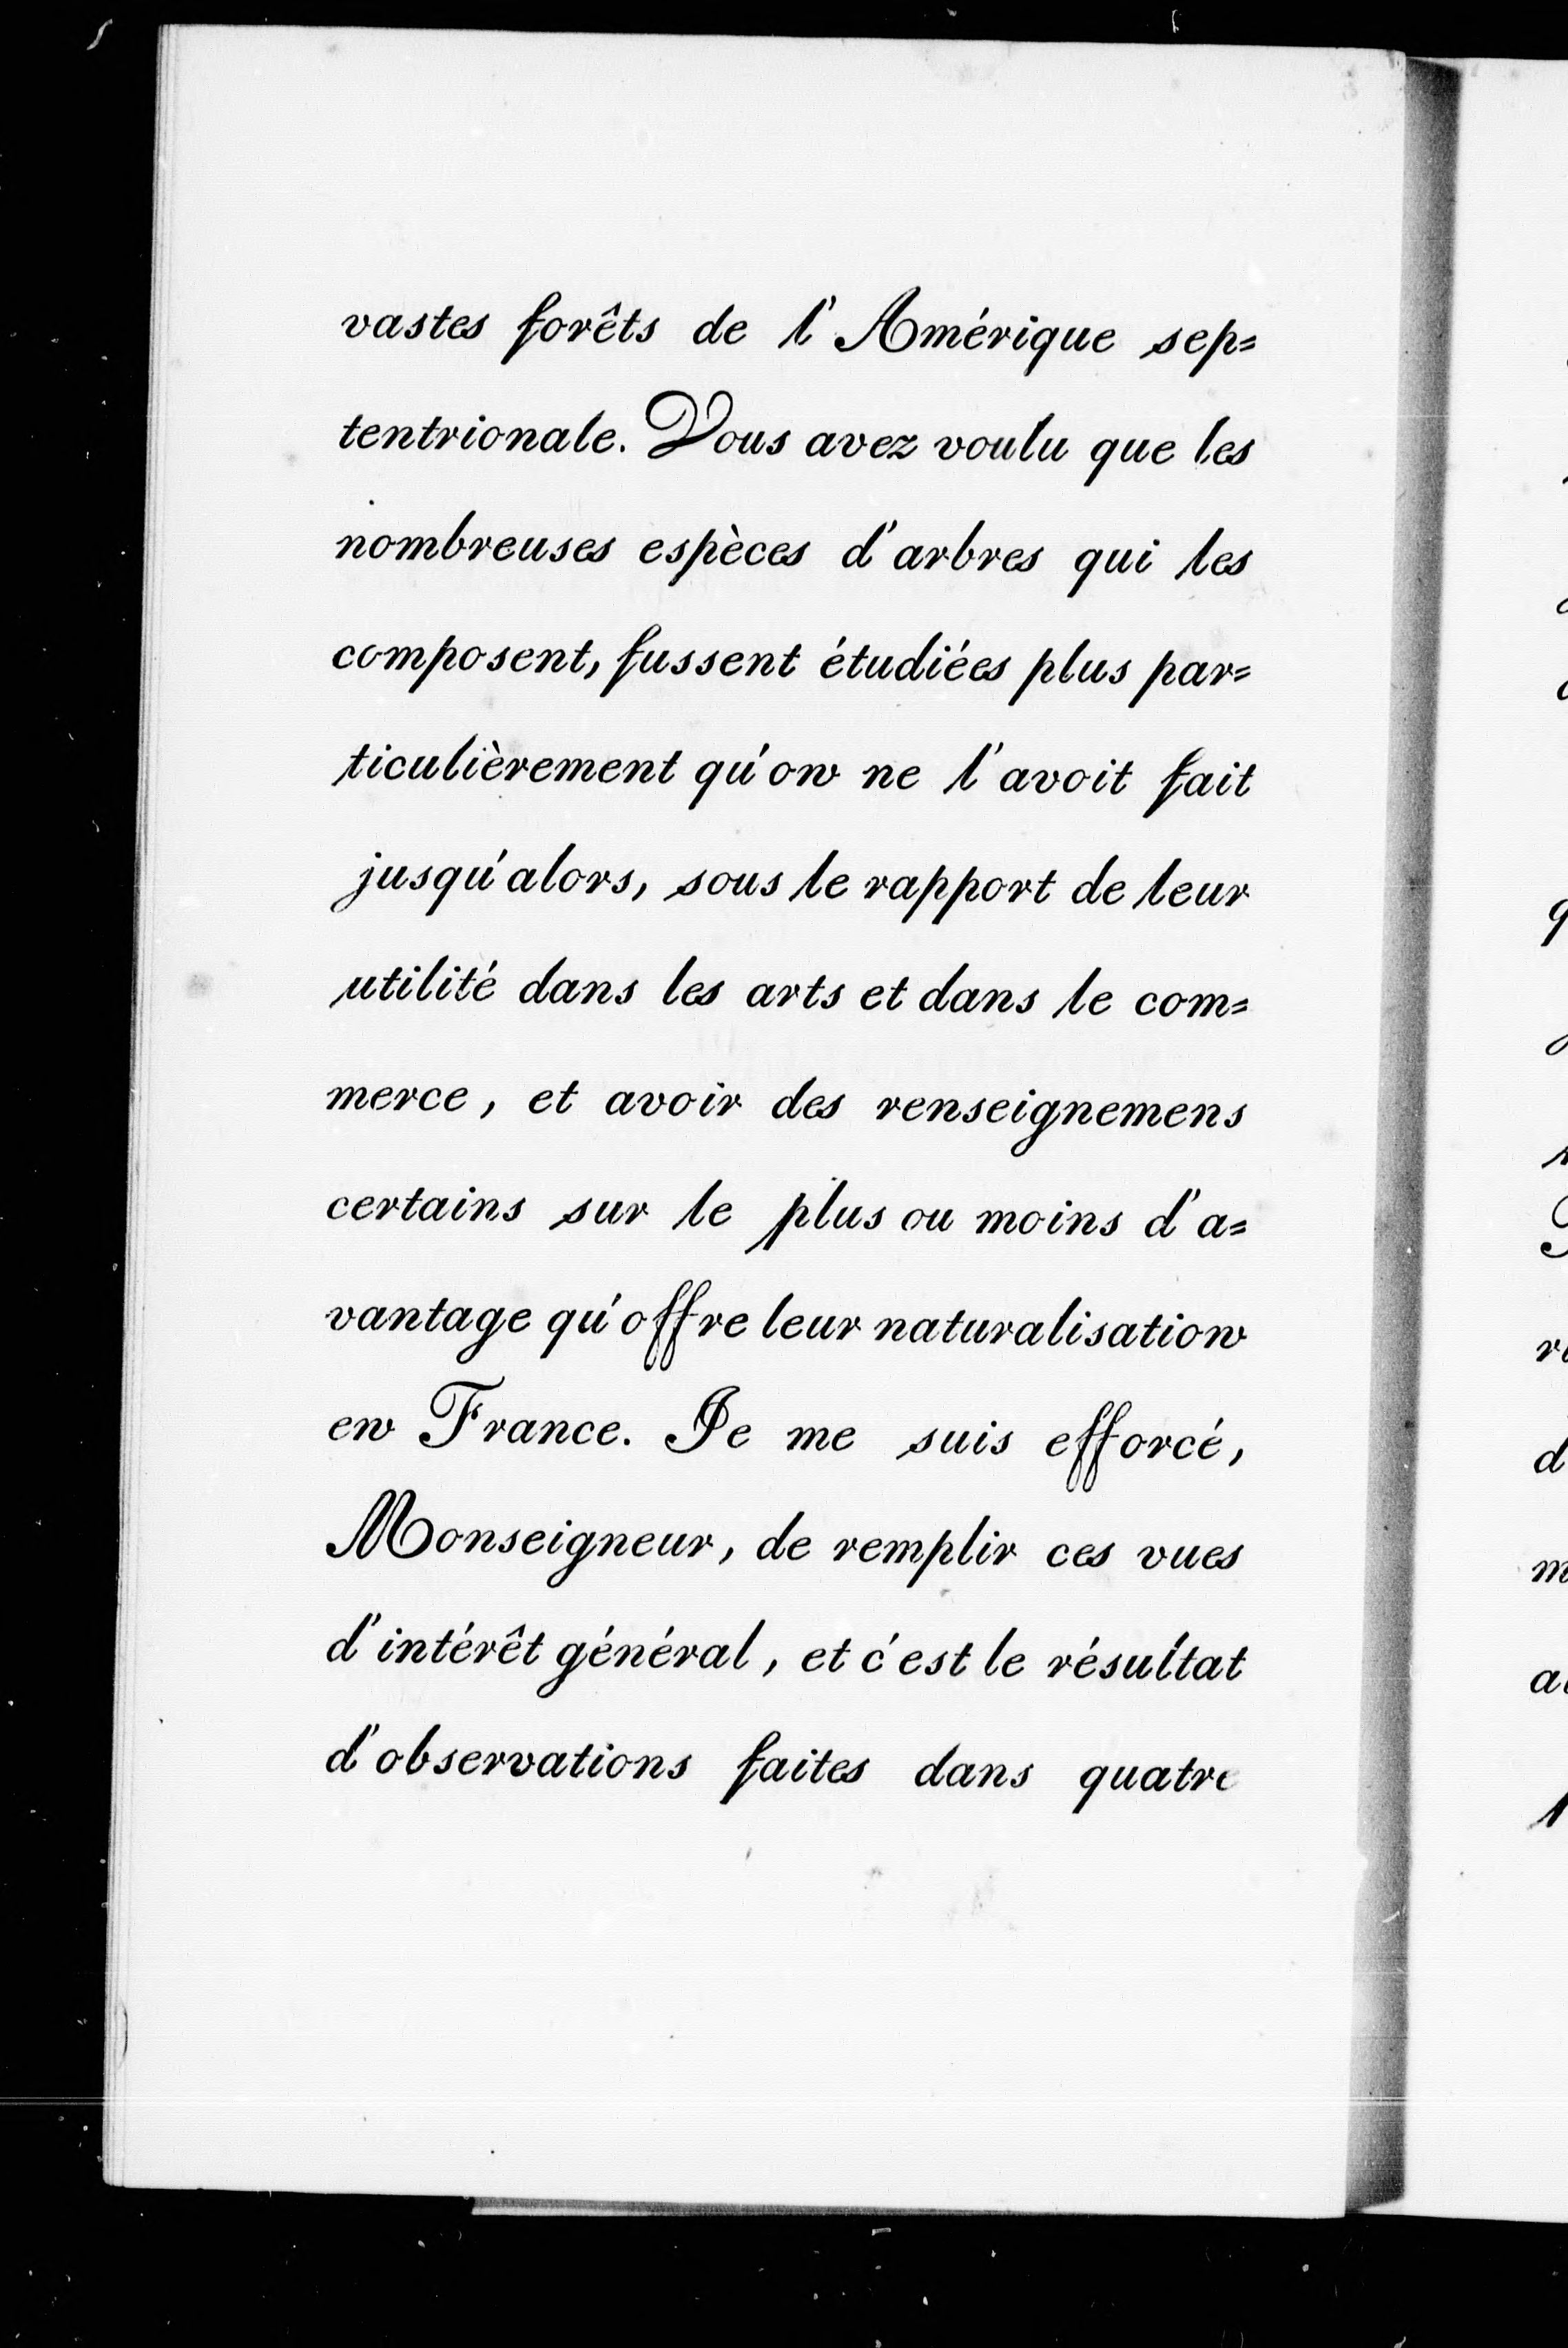 vastes forêts de l'Amérique sep=
tentrionale. Vous avez voulu que les
nombreuses espèces d'arbres qui les
composent, fussent étudiées plus par=
ticulièrement qu'on ne l'avoit fait
jusqu'alors, sous le rapport de leur
utilité dans les arts et dans le com=
merce, et avoir des renseignemens
certains sur le plus ou moins d'a=
vantage qu'offre leur naturalisation
en France. Je me suis efforcé,
Monseigneur, de remplir ces vues
d'intérêt général, et c'est le résultat
d'observations faites dans quatre